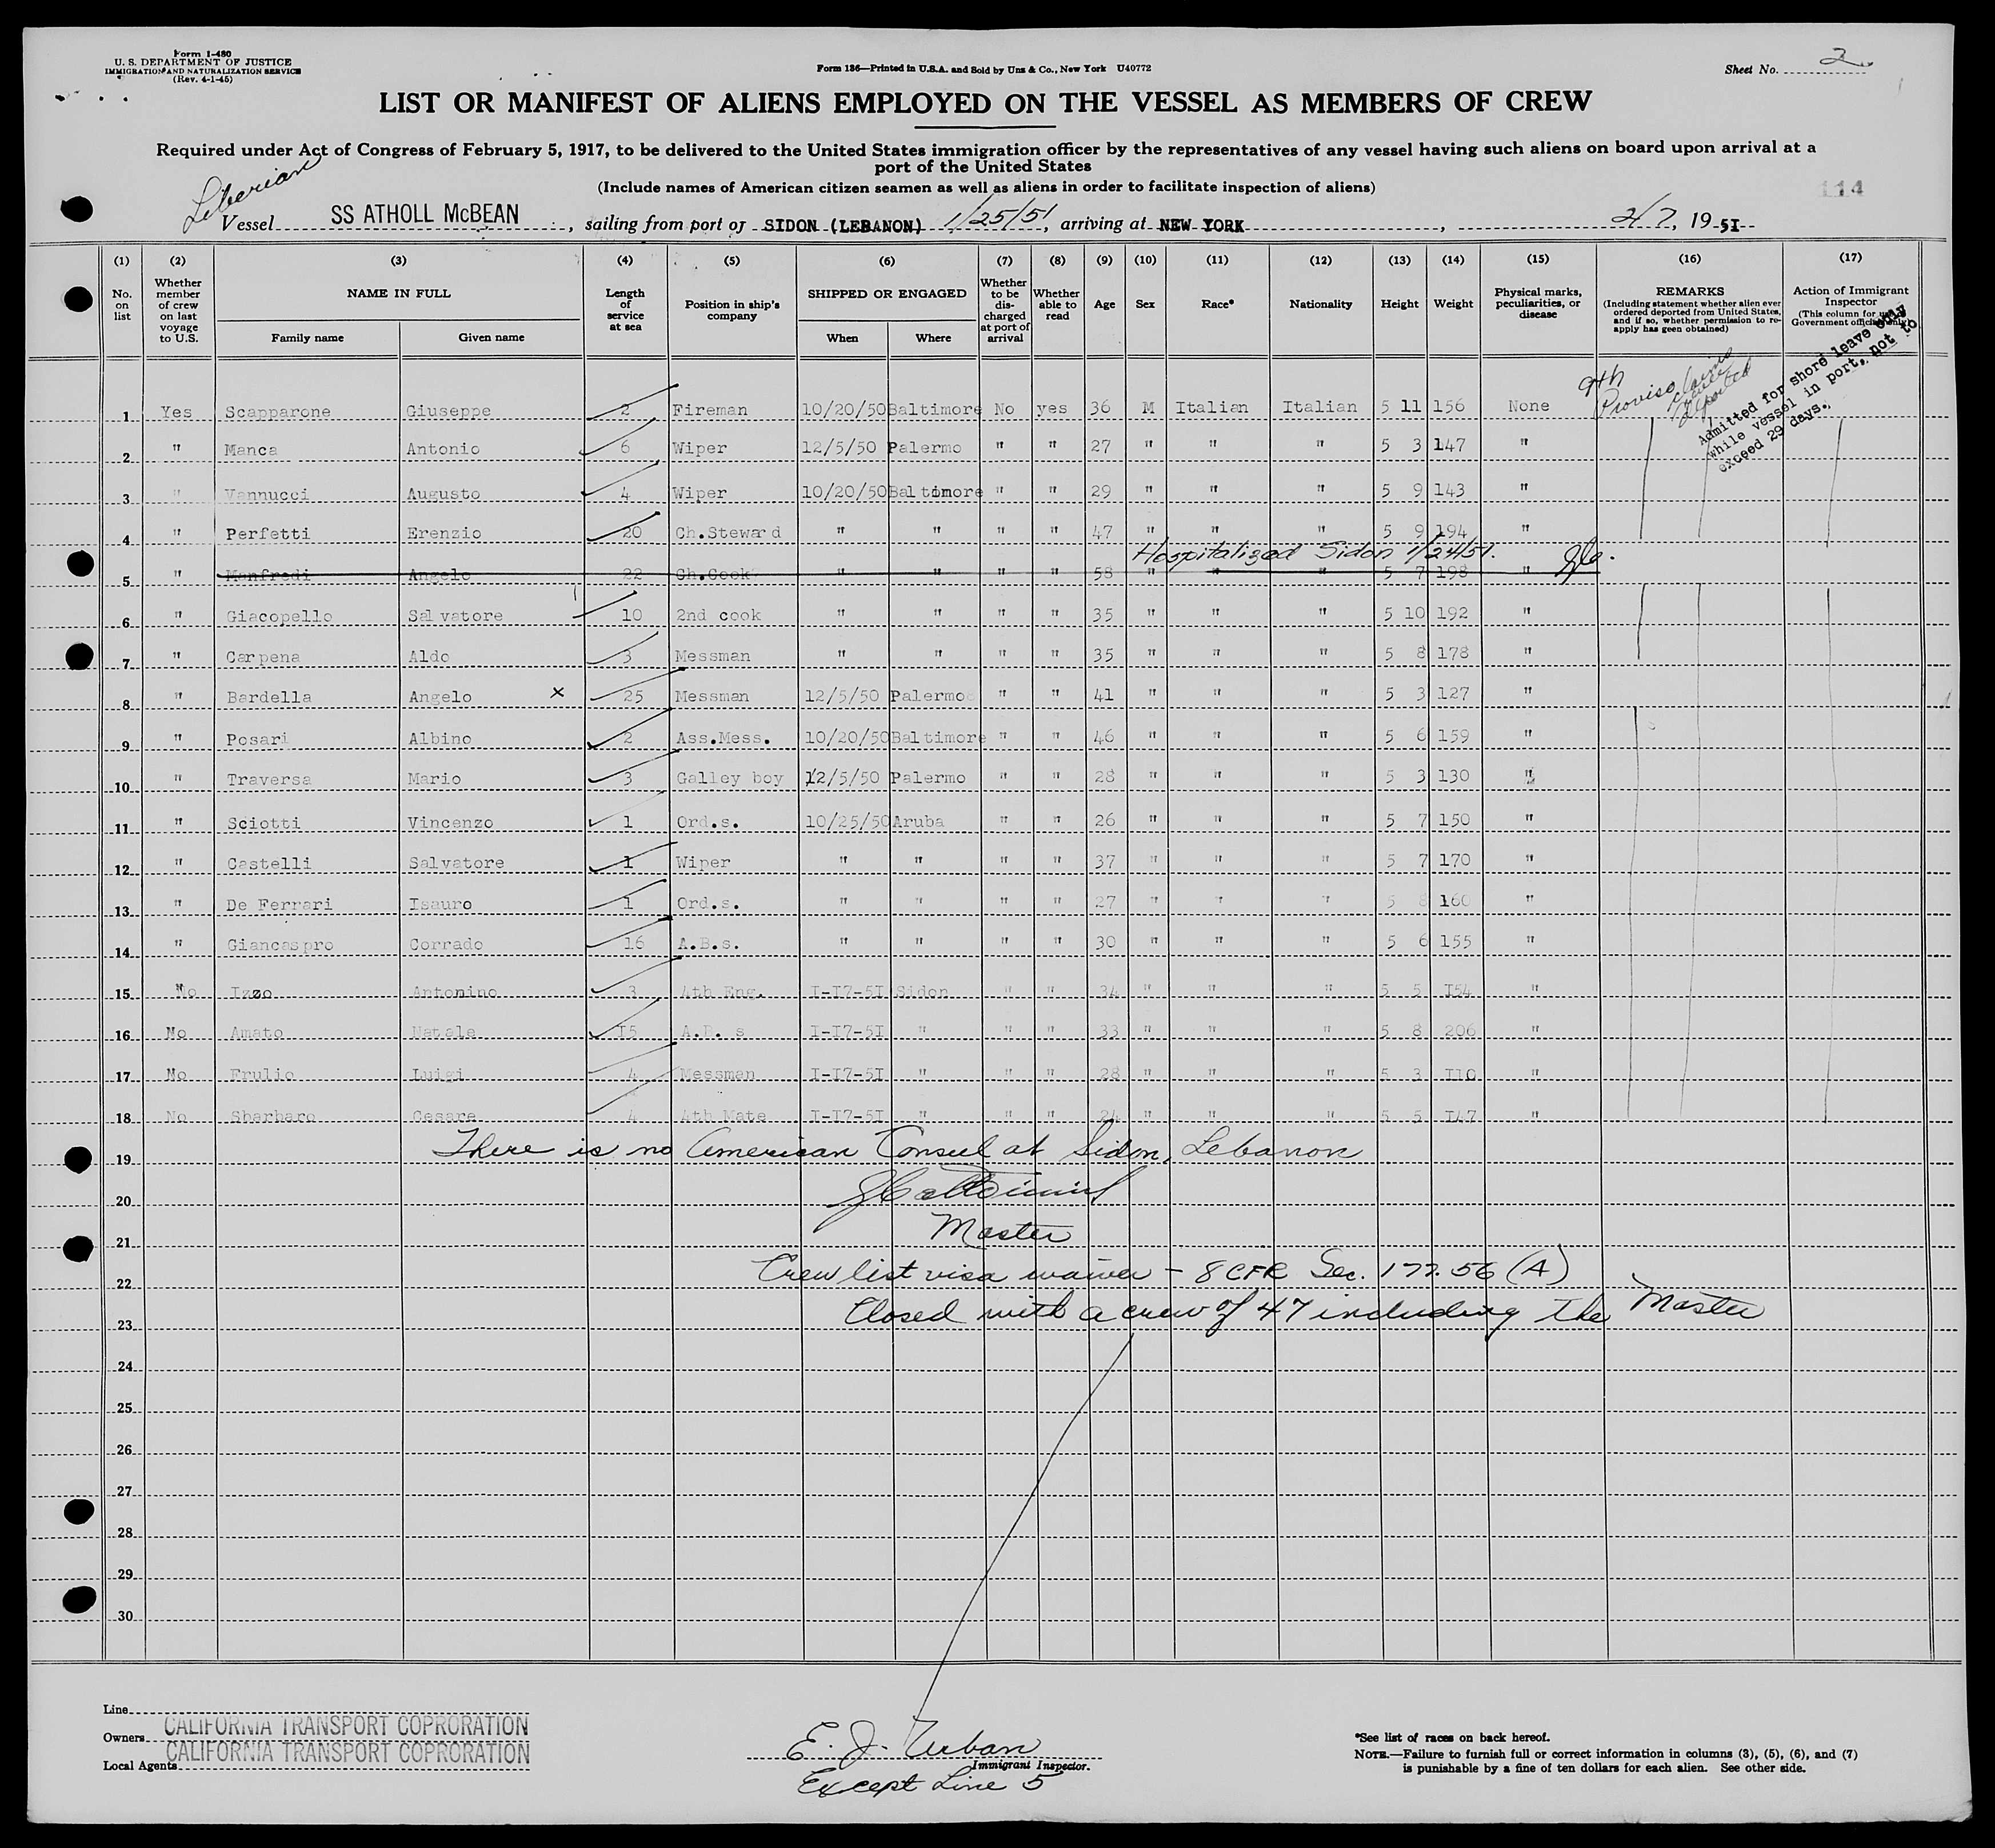 Form 1-480
U. S. DEPARTMENT OF JUSTICE
IMMIGRATION AND NATURALIZATION SERVICE
(Rev. 4-1-45)
Form 136—Printed in U.S.A. and Sold by Unz & Co., New York U40772
Sheet No. 2
LIST OR MANIFEST OF ALIENS EMPLOYED ON THE VESSEL AS MEMBERS OF CREW
Required under Act of Congress of February 5, 1917, to be delivered to the United States immigration officer by the representatives of any vessel having such aliens on board upon arrival at a
port of the United States
(Include names of American citizen seamen as well as aliens in order to facilitate inspection of aliens)
114
Liberian
Vessel SS ATHOLL McBEAN, sailing from port of SIDON (LEBANON) 1/25/51, arriving at NEW YORK, 2/7, 1951
(1) (2) (3) (4) (5) (6) (7) (8) (9) (10) (11) (12) (13) (14) (15) (16) (17)
No. on list
Whether member of crew on last voyage to U.S.
NAME IN FULL
Family name Given name
Length of service at sea
Position in ship's company
SHIPPED OR ENGAGED
When Where
Whether to be discharged at port of arrival
Whether able to read
Age
Sex
Race*
Nationality
Height
Weight
Physical marks, peculiarities, or disease
REMARKS
(Including statement whether alien ever ordered deported from United States, and if so, whether permission to reapply has geen obtained)
Action of Immigrant Inspector
(This column for use Government officials only)
9th Proviso
Admitted for shore leave only
while vessel in port, not to
exceed 29 days.
1 Yes Scapparone Giuseppe 2 Fireman 10/20/50 Baltimore No yes 36 M Italian Italian 5 11 156 None
2 " Manca Antonio 6 Wiper 12/5/50 Palermo " " 27 " " " 5 3 147 "
3 " Vannucci Augusto 4 Wiper 10/20/50 Baltimore " " 29 " " " 5 9 143 "
4 " Perfetti Erenzio 20 Ch.Steward " " " " 47 " " " 5 9 194 "
Hospitalized Sidon 1/24/51.
5 " Manfredi Angelo 22 Ch.Cook " " " " 58 " " " 5 7 198 "
6 " Giacopello Salvatore 10 2nd cook " " " " 35 " " " 5 10 192 "
7 " Carpena Aldo 3 Messman " " " " 35 " " " 5 8 178 "
8 " Bardella Angelo x 25 Messman 12/5/50 Palermo " " 41 " " " 5 3 127 "
9 " Posari Albino 2 Ass.Mess. 10/20/50 Baltimore " " 46 " " " 5 6 159 "
10 " Traversa Mario 3 Galley boy 12/5/50 Palermo " " 28 " " " 5 3 130 "
11 " Sciotti Vincenzo 1 Ord.s. 10/25/50 Aruba " " 26 " " " 5 7 150 "
12 " Castelli Salvatore 1 Wiper " " " " 37 " " " 5 7 170 "
13 " De Ferrari Isauro 1 Ord.s. " " " " 27 " " " 5 8 160 "
14 " Giancaspro Corrado 16 A.B.s. " " " " 30 " " " 5 6 155 "
15 No Izzo Antonino 3 4th Eng. I-I7-5I Sidon " " 34 " " " 5 5 I54 "
16 No Amato Natale I5 A.B. s I-I7-5I " " " 33 " " " 5 8 206 "
17 No Frulio Luigi 4 Messman I-I7-5I " " " 28 " " " 5 3 II0 "
18 No Sbarbaro Cesare 4 4th Mate I-I7-5I " " " 24 " " " 5 5 I47 "
There is no American Consul at Sidon, Lebanon
19
20
Master
21
Crew list visa waiver - 8 CFR Sec. 177.56 (A)
22
Closed with a crew of 47 including the Master
23
24
25
26
27
28
29
30
Line
Owners CALIFORNIA TRANSPORT COPRORATION
Local Agents CALIFORNIA TRANSPORT COPRORATION
E. J. Urban
Immigrant Inspector.
Except Line 5
*See list of races on back hereof.
NOTE.—Failure to furnish full or correct information in columns (3), (5), (6), and (7)
is punishable by a fine of ten dollars for each alien. See other side.